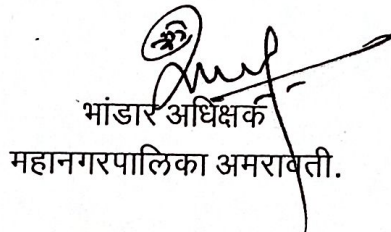 भांडार अधिक्षक
महानगरपालिका अमरावती.